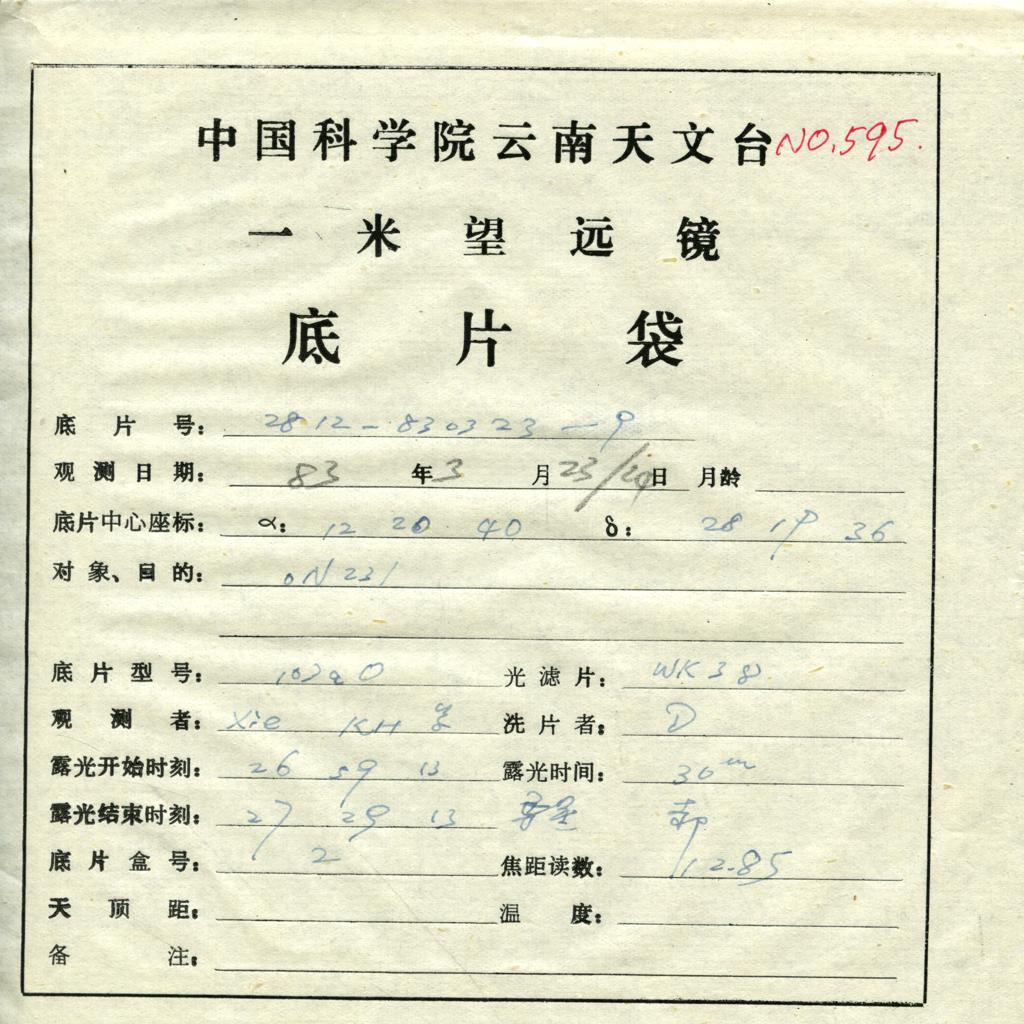 中国科学院云南天文台 NO.595.
一米望远镜
底片袋
底片号: 2812-830323-9
观测日期: 83年3月23/24日 月龄
底片中心座标: α: 12 20 40 δ: 28 19 36
对象、目的: ON231
底片型号: 103aO 光滤片: WK38
观测者: Xie KH 洗片者: D
露光开始时刻: 26 59 13 露光时间: 30m
露光结束时刻: 27 29 13
底片盒号: 2 焦距读数: 12.85
天顶距: 温度:
备注: